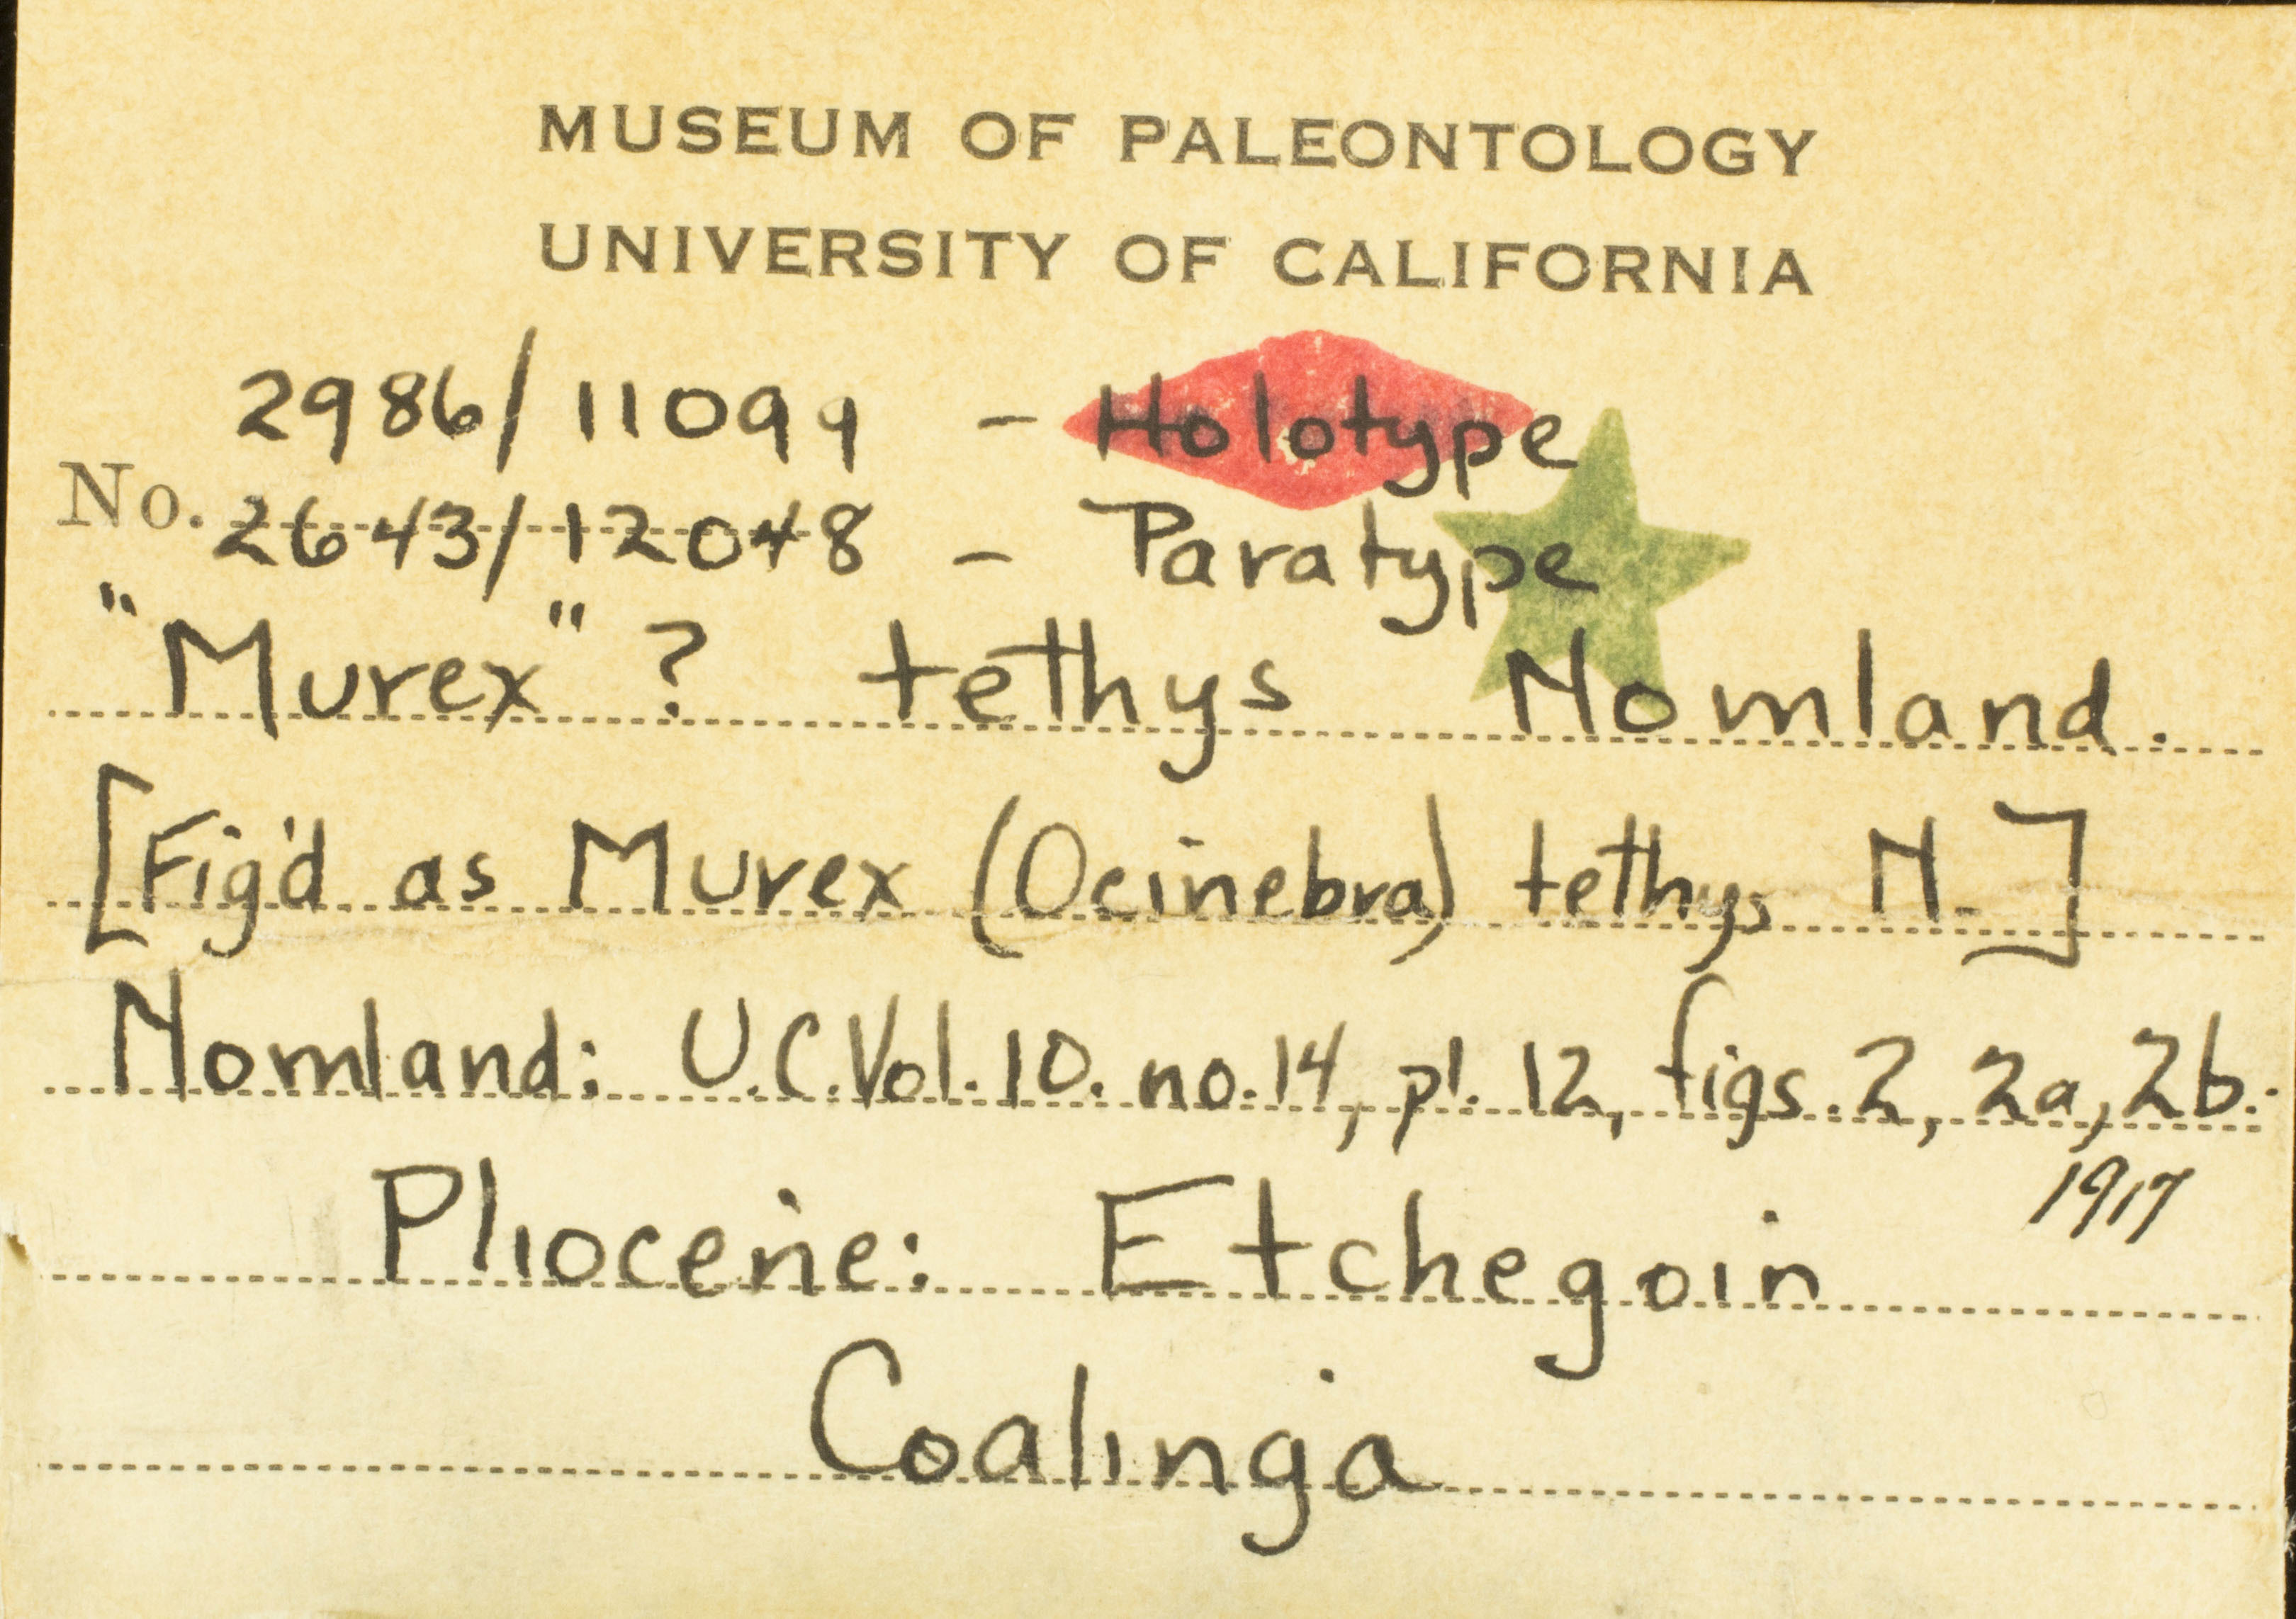 MUSEUM OF PALEONTOLOGY
UNIVERSITY OF CALIFORNIA
2986/11099 - Holotype
No. 2643/12048 - Paratype
"Murex" ? tethys Nomland.
[Fig'd as Murex (Ocinebra) tethys N.]
Nomland: U.C. Vol. 10. no. 14, pl. 12, figs. 2, 2a, 2b.
1917
Pliocene: Etchegoin
Coalinga